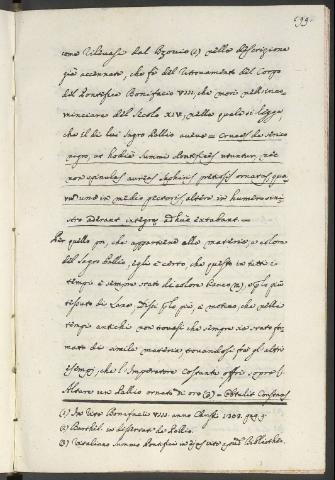 99.
come rilevasi dal Bzovio (1) nella descrizione
già accennata, che fà del ritrovamento del Corpo
del Pontefice Bonifacio VIII, che morì nell'inco-
minciare del Secolo XIV, nella quale si legge,
che il di lui Sagro Pallio avene = Cruces de serico
nigro, ut hodie Summi Pontifices utuntur, nec
non spinulas aureas Saphiris pretiosis ornatas, qua-
rum una in medio pectoris, altera in humero sini-
stro aderant integra, adhuc extabant. =
Per quello poi, che appartiene alla materia, e colore
del Sagro Pallio, egli è certo, che questo in tutti i
tempi è sempre stato di colore bianco (2), e per lo più
tessuto di Lana, Dissi per lo più, a motivo, che nella
tempi antichi non trovasi che sempre sia stato for-
mato di simile materia, trovandosi fra gli altri
esempj, che l'Imperatore Costante offrì sopra l'
Altare un Pallio ornato di oro (3) = Obtulit Constans
(1) In Vita Bonifacii VIII. anno Christi 1303.
(2) Barthol. in dissertat. de Pallio.
(3) Vitalianus Summus Pontifex in ejus vita apud Biblioth.